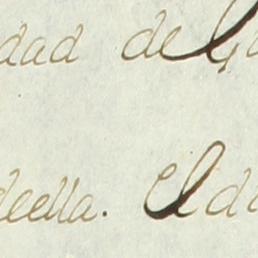 dad de
deella. El